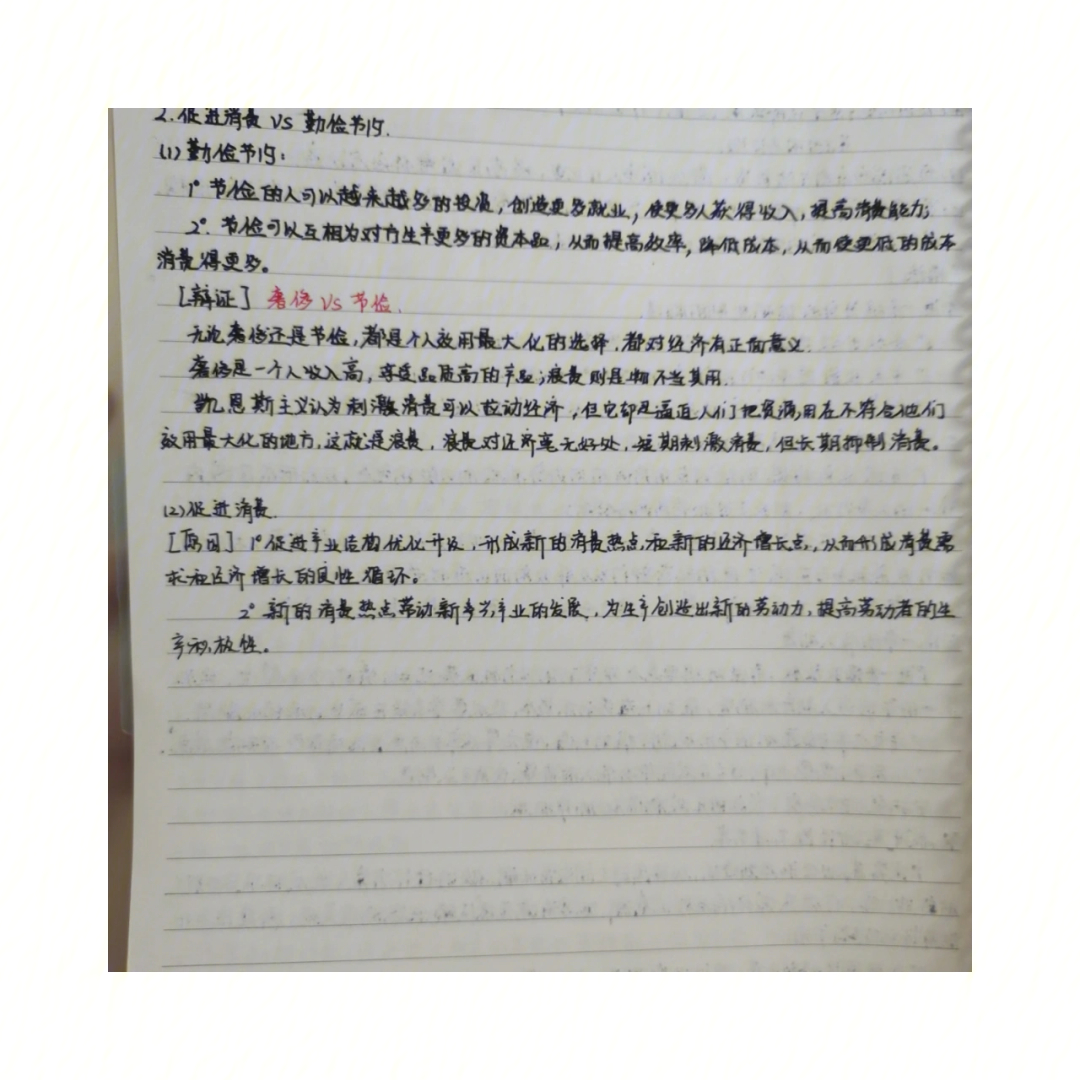 2. 促进消费 VS 勤俭节约.
(1) 勤俭节约:
1° 节俭的人可以越来越多的投资, 创造更多就业, 使更多人获得收入, 提高消费能力;
2°. 节俭可以互相为对方生产更多的资本品, 从而提高效率, 降低成本, 从而使更低的成本
消费得更多。
[辩证] 奢侈 VS 节俭.
无论奢侈还是节俭, 都是个人效用最大化的选择, 都对经济有正面意义.
奢侈是一个人收入高, 享受品质高的产品; 浪费则是物不当其用.
凯恩斯主义认为刺激消费可以拉动经济, 但它却是逼迫人们把资源用在不符合他们
效用最大化的地方, 这就是浪费, 浪费对经济毫无好处, 短期刺激消费, 但长期抑制消费。
(2) 促进消费.
[原因] 1° 促进产业结构优化升级, 形成新的消费热点和新的经济增长点, 从而形成消费需
求和经济增长的良性循环。
2° 新的消费热点带动新产业的发展, 为生产创造出新的劳动力, 提高劳动者的生
产积极性。